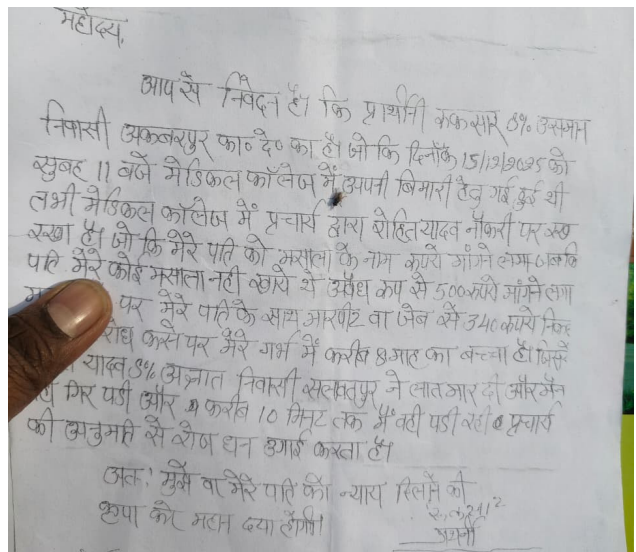 महोदय,
आप से निवेदन है। कि प्रार्थीनी ककसार S/o उसमान
निवासी अकबरपुर का० दे० का है। जो कि दिनाँक 15/12/2025 को
सुबह 11 बजे मेडिकल कॉलेज में अपनी बिमारी हेतु गई हुई थी
तभी मेडिकल कॉलेज में प्रचार्य द्वारा रोहित यादव नौकरी पर रख
रखा है। जो कि मेरे पति को मसाला के नाम रूपये मांगने लगा जबकि
पति मेरे कोई मसाला नही खाये थे अवैध रूप से 500 रूपये मांगने लगा
पर मेरे पति के साथ मारपीट वा जेब से 340 रूपये
करने पर मेरे गर्भ में करीब 8 माह का बच्चा है। जिसे
यादव S/o अज्ञात निवासी सलावतपुर ने लात मार दी और मैन
गिर पडी और करीब 10 मिनट तक मैं वही पडी रही प्रचार्य
की अनुमति से रोज धन उगाई करता है।
अतः मुझे वा मेरे पति को न्याय दिलाने की
कृपा करे महान दया होगी।
प्रार्थी